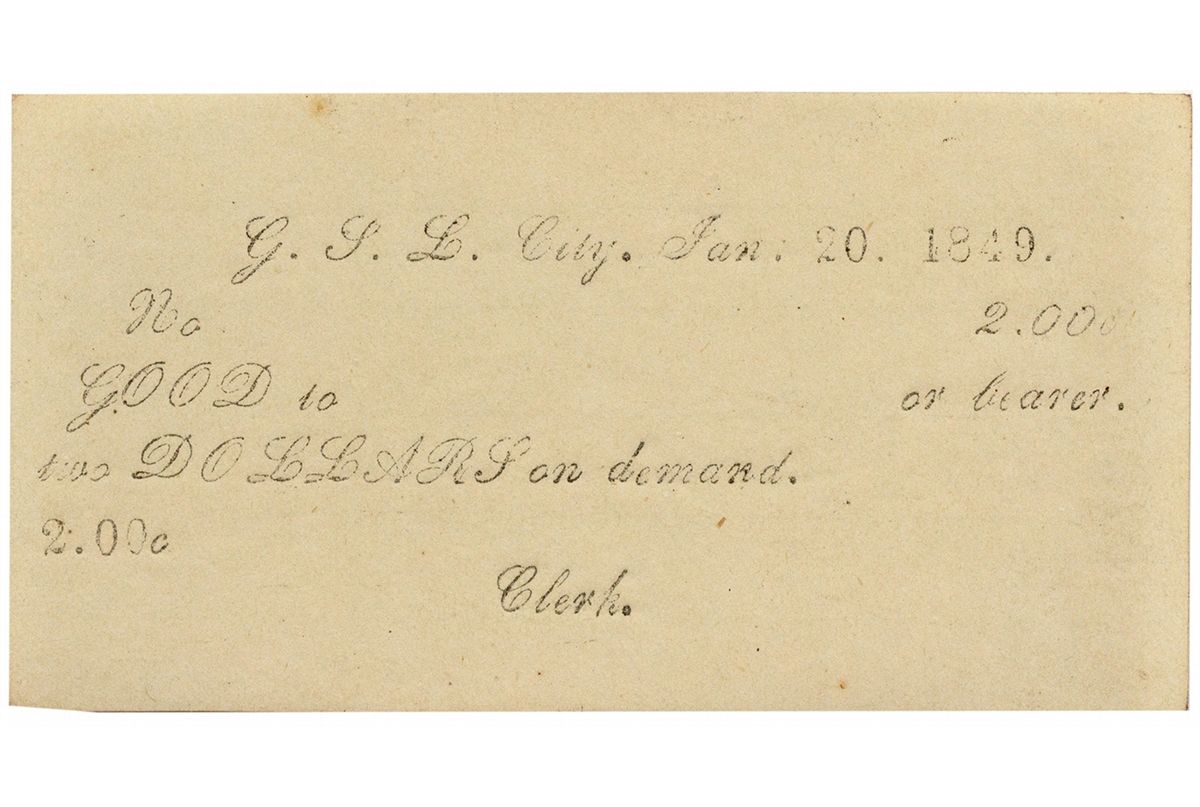 G. S. L. City. Jan: 20. 1849.
No 2.00c
GOOD to or bearer.
two DOLLARS on demand.
2.00c
Clerk.